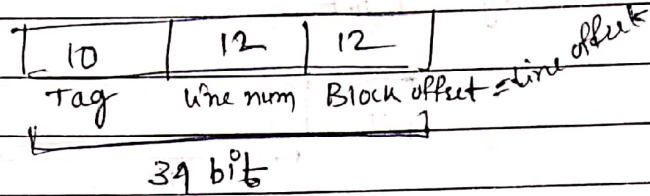 10 12 12
Tag line num Block offset = line offset
34 bit